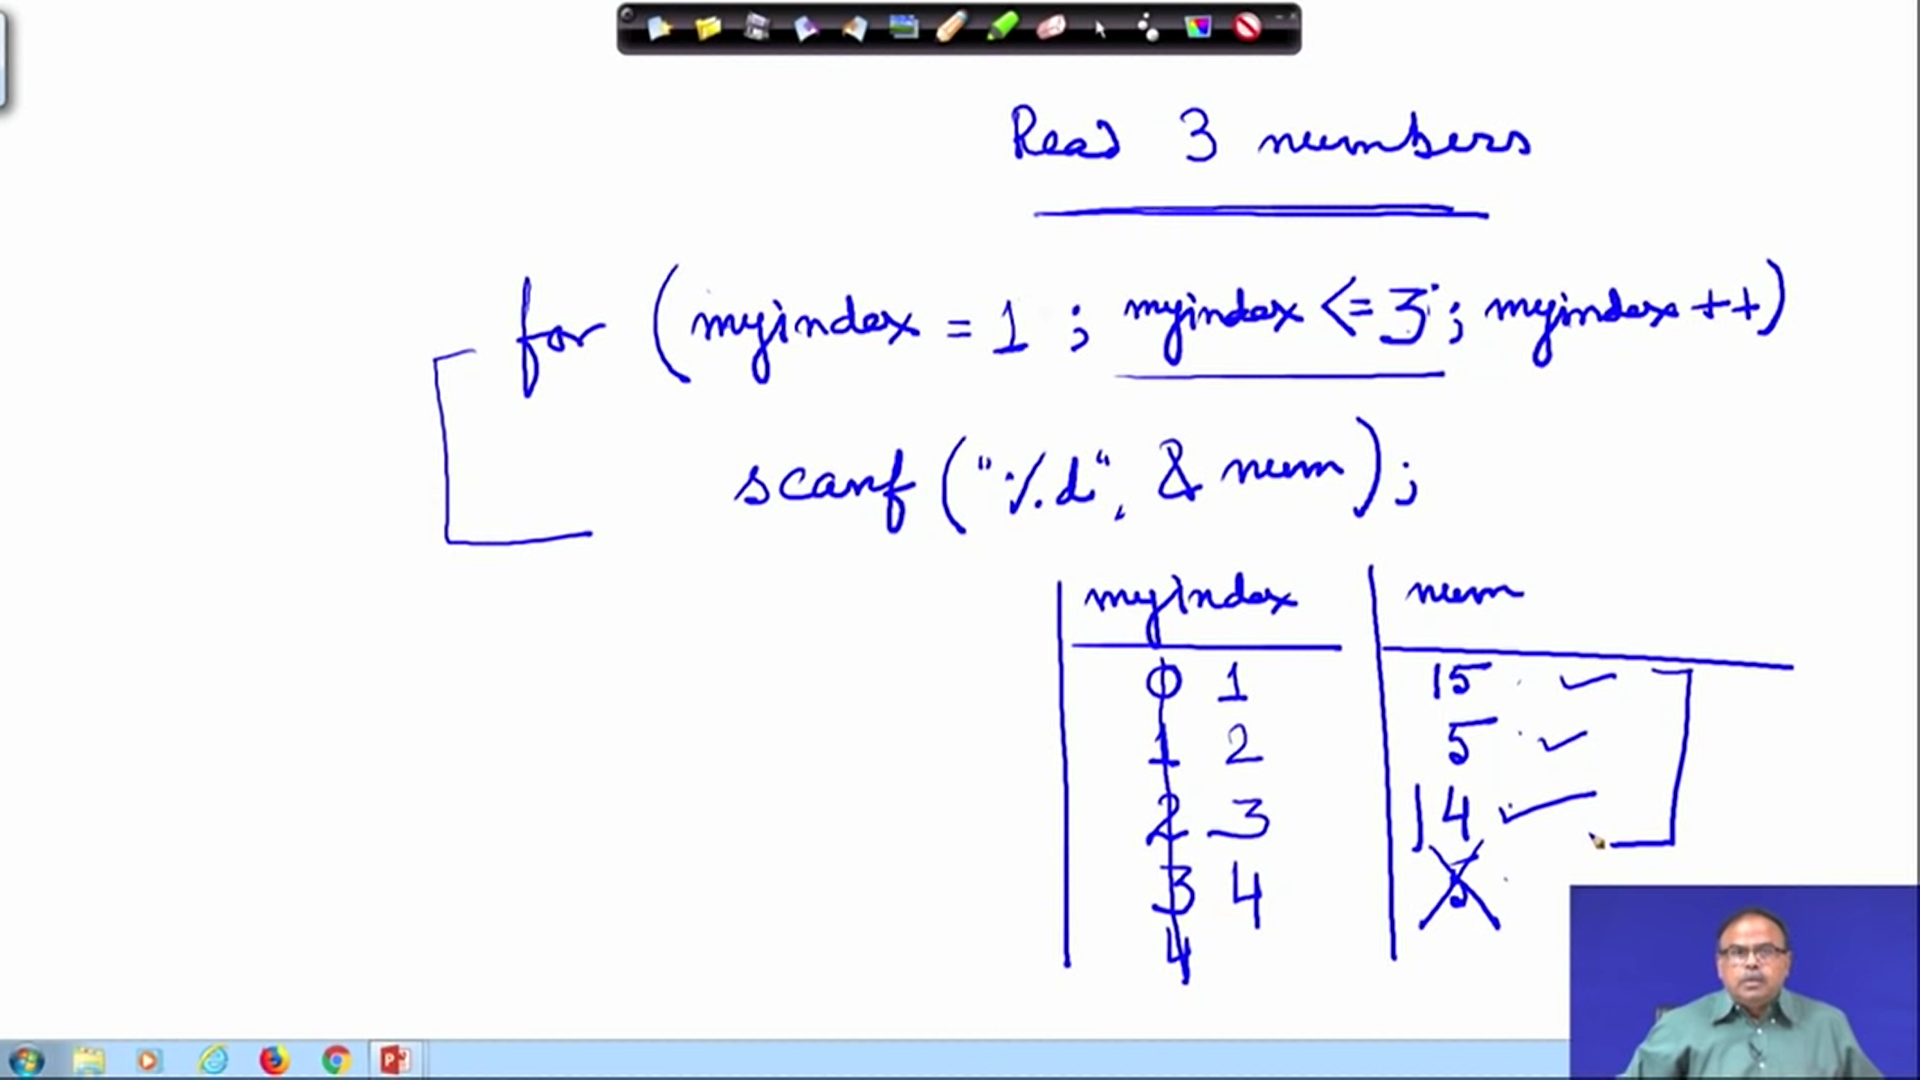 Read 3 numbers
for (myindex = 1 ; myindex <= 3 ; myindex ++)
scanf ("%d", & num);
myindex num
0 1 15
1 2 5
2 3 14
3 4 5
4